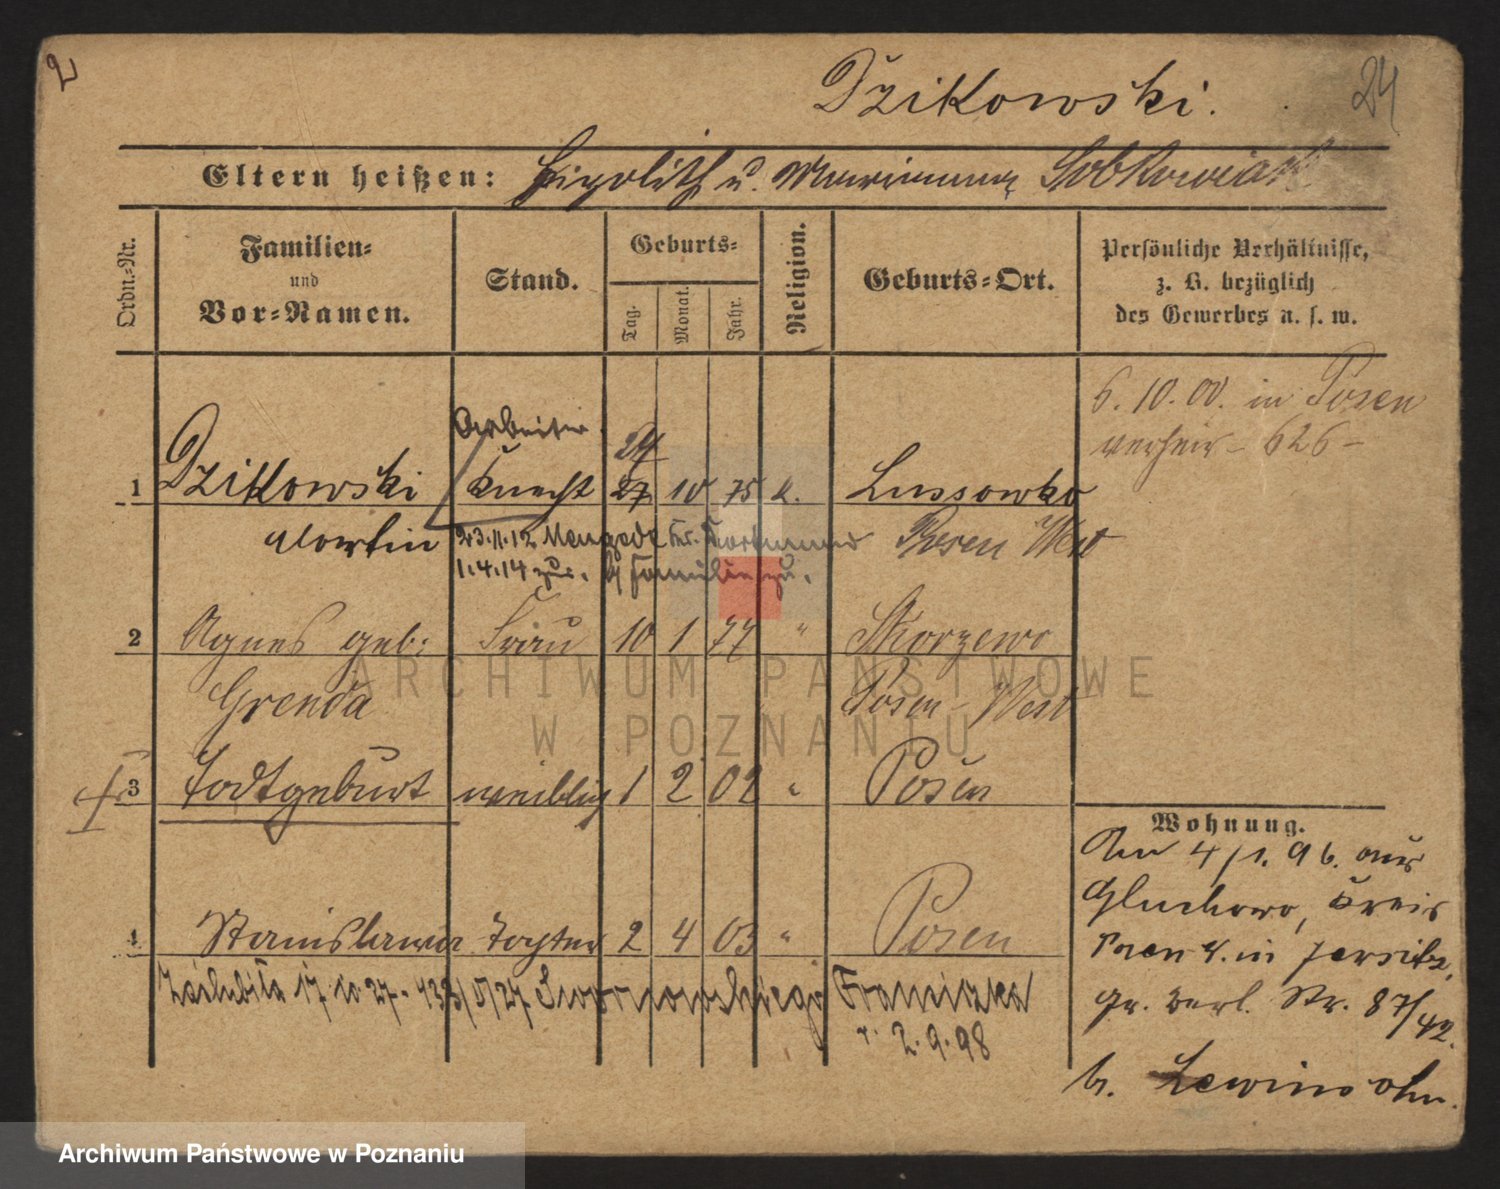 2
Dzikowski.
24
Eltern heißen: Hipolith u. Marianna Sobkowiak
Ordn.-Nr.
Familien-
und
Vor-Namen.
Stand.
Geburts-
Tag.
Monat.
Jahr.
Religion.
Geburts-Ort.
Persönliche Verhältnisse,
z. B. bezüglich
des Gewerbes u. s. w.
6. 10. 00. in Posen
verheir. 626
Arbeiter.
24
1 Dzikowski Knecht 27 10 75 k. Lussowko
Martin Posen West
23.11.12 Mengede Kr. Dortmund
1.4.14 zur. Familie
2 Agnes geb: Frau 10 1 77 " Skorzewo
Grenda Posen West
3 Todtgeburt weiblich 1 2 02 " Posen
Wohnung.
Am 4/1. 96. aus
Gluchowo, Kreis
Posen W. in Jersitz,
Gr. Berl. Str. 87/42.
b. Lewinsohn.
4 Stanislawa Tochter 2 4 03 " Posen
Zaślubiła 17 10 27 Franciszka
r. 2.9.98
ARCHIWUM PAŃSTWOWE
W POZNANIU
Archiwum Państwowe w Poznaniu